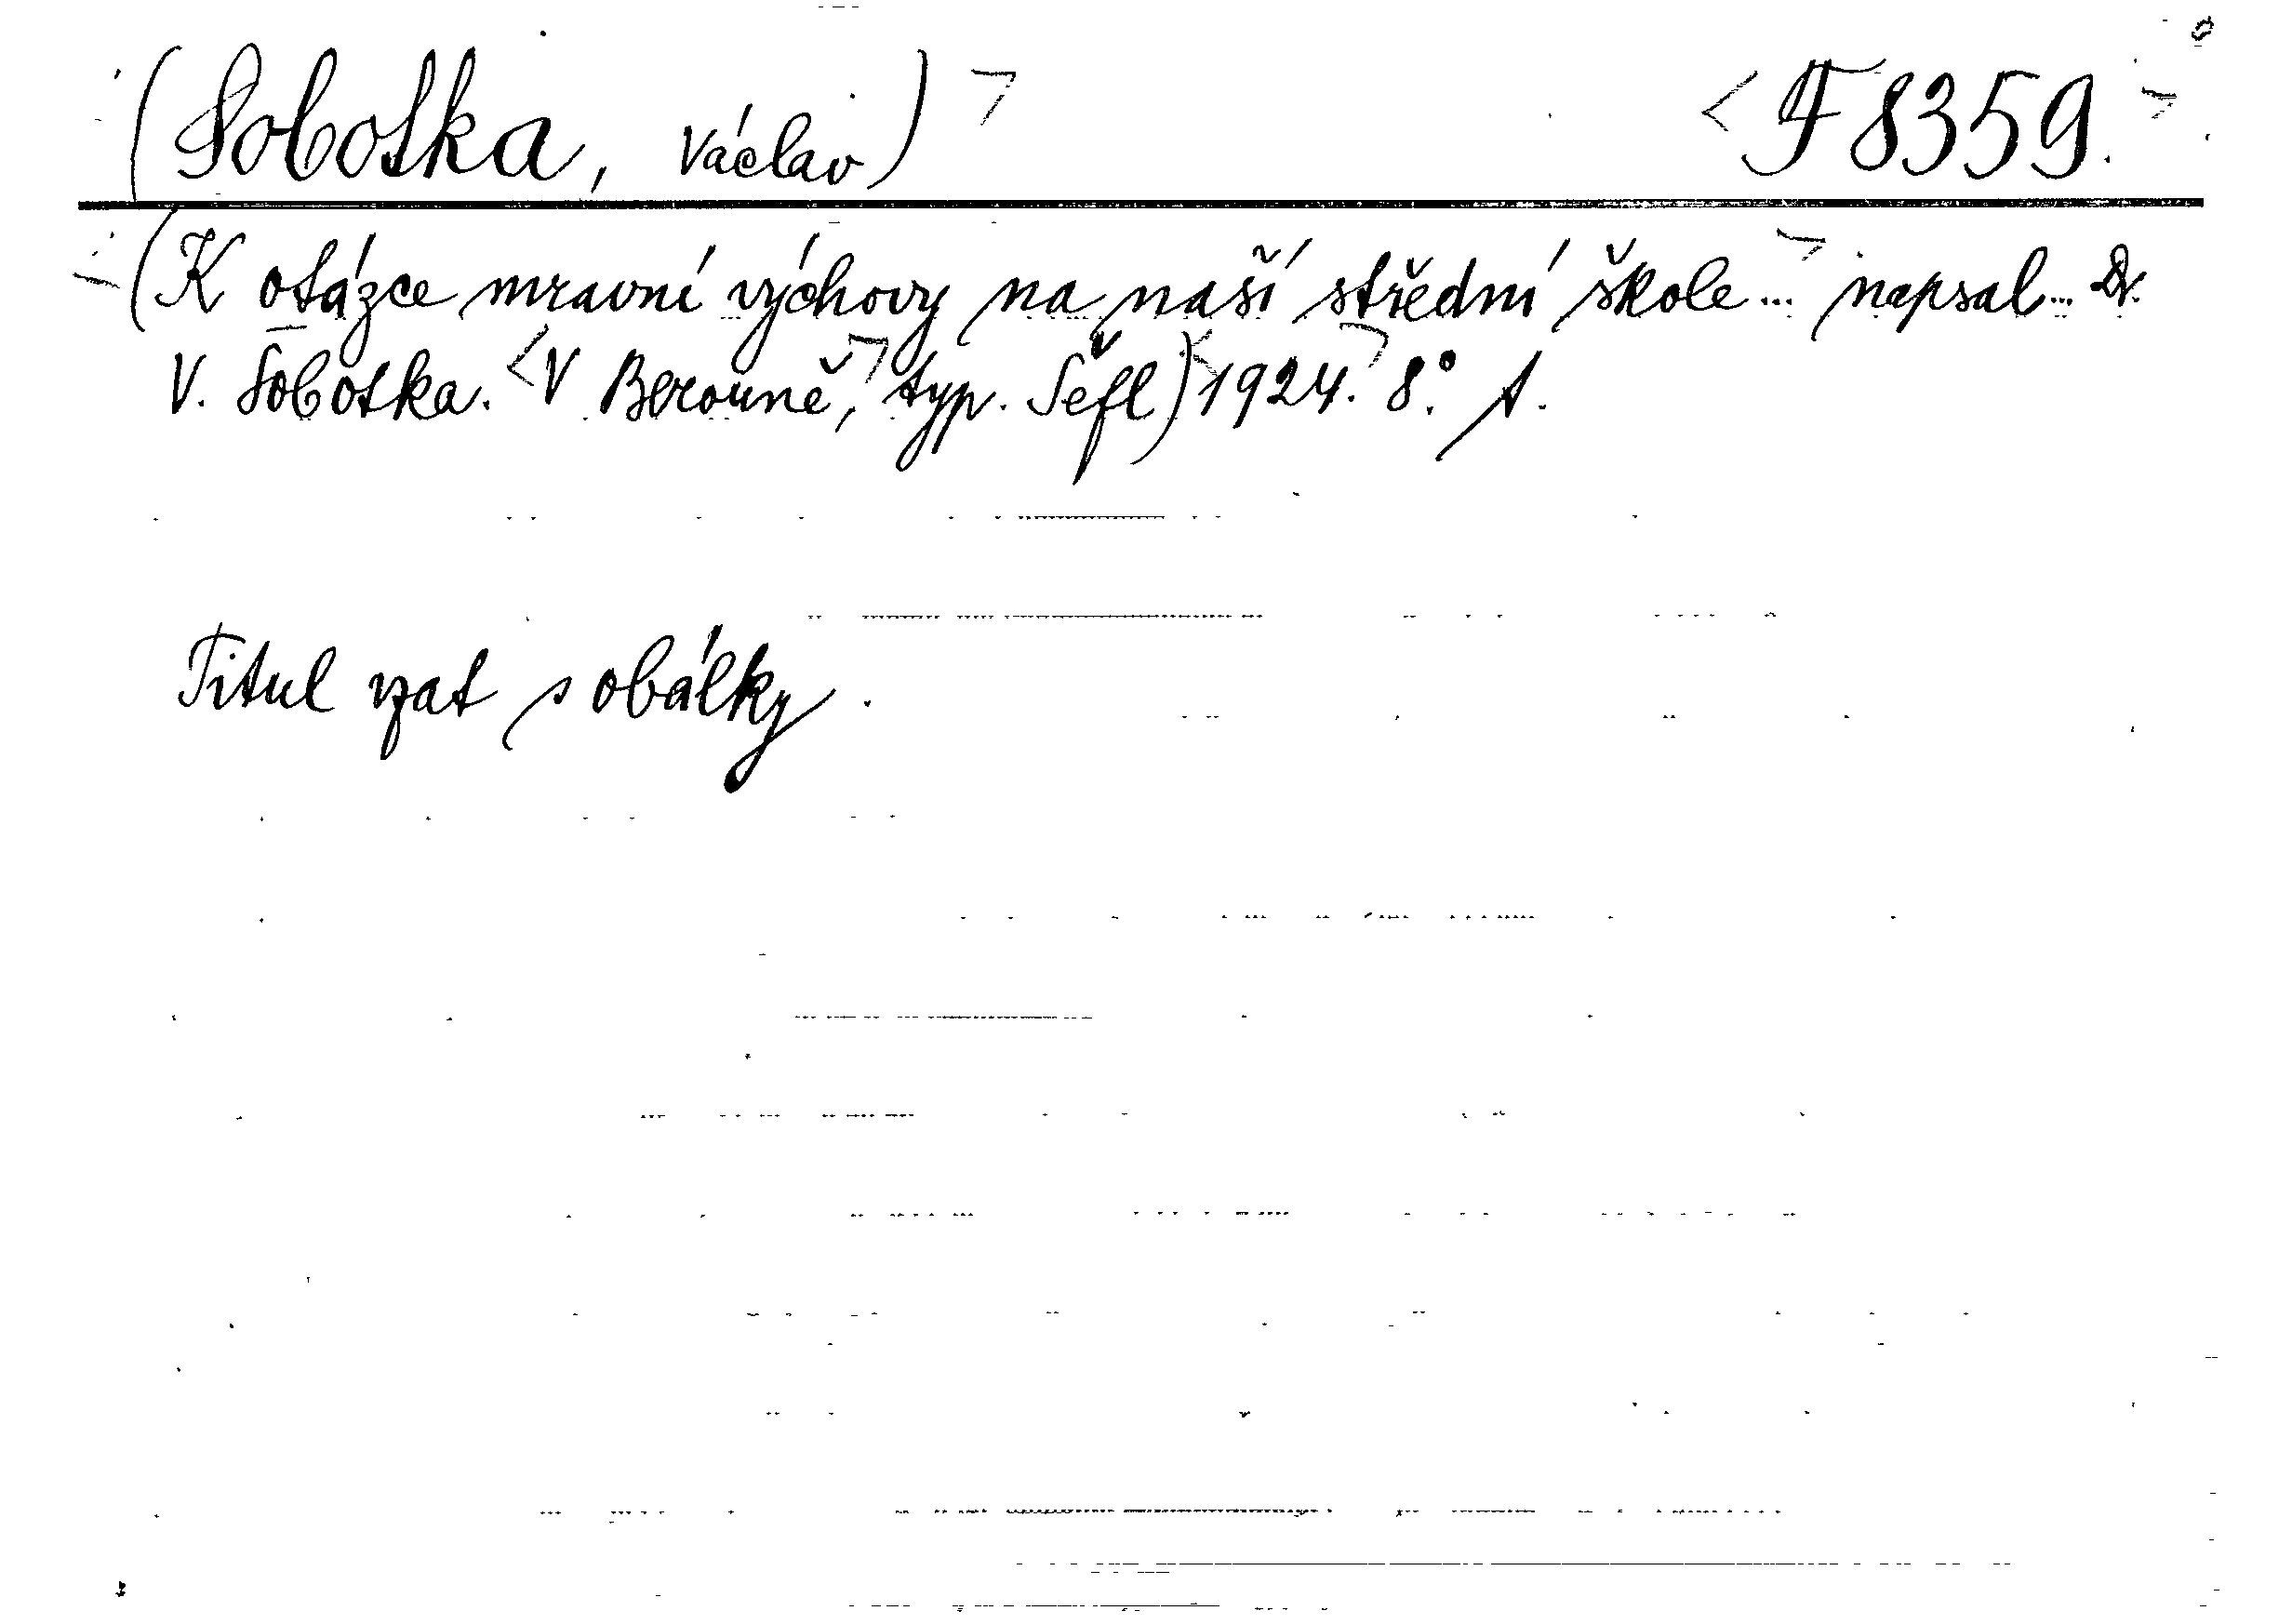 (Sobotka, Václav) F 8359.
(K otázce mravní výchovy na naší střední škole ... napsal ... Dr.
V. Sobotka. V Berouně, typ. Šefl) 1924. 8.°
Titul vzat s obálky.